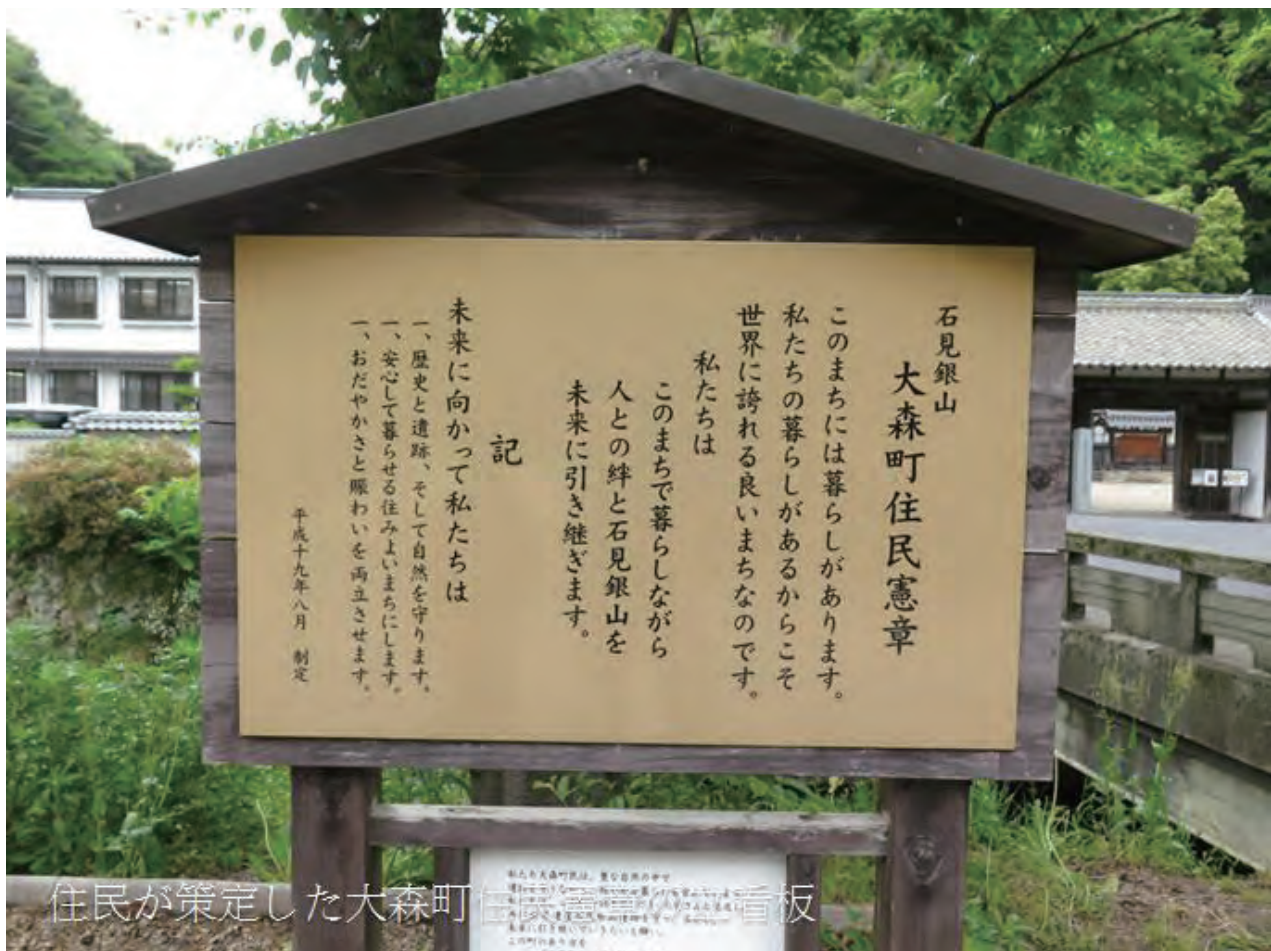 石見銀山
大森町住民憲章
このまちには暮らしがあります。
私たちの暮らしがあるからこそ
世界に誇れる良いまちなのです。
私たちは
このまちで暮らしながら
人との絆と石見銀山を
未来に引き継ぎます。
記
未来に向かって私たちは
一、歴史と遺跡、そして自然を守ります。
一、安心して暮らせる住みよいまちにします。
一、おだやかさと賑わいを両立させます。
平成十九年八月 制定
私たち大森町民は、豊な自然の中で
未来に引き継いでいきたいと願い、
この町のあり方を
住民が策定した大森町住民憲章の立看板